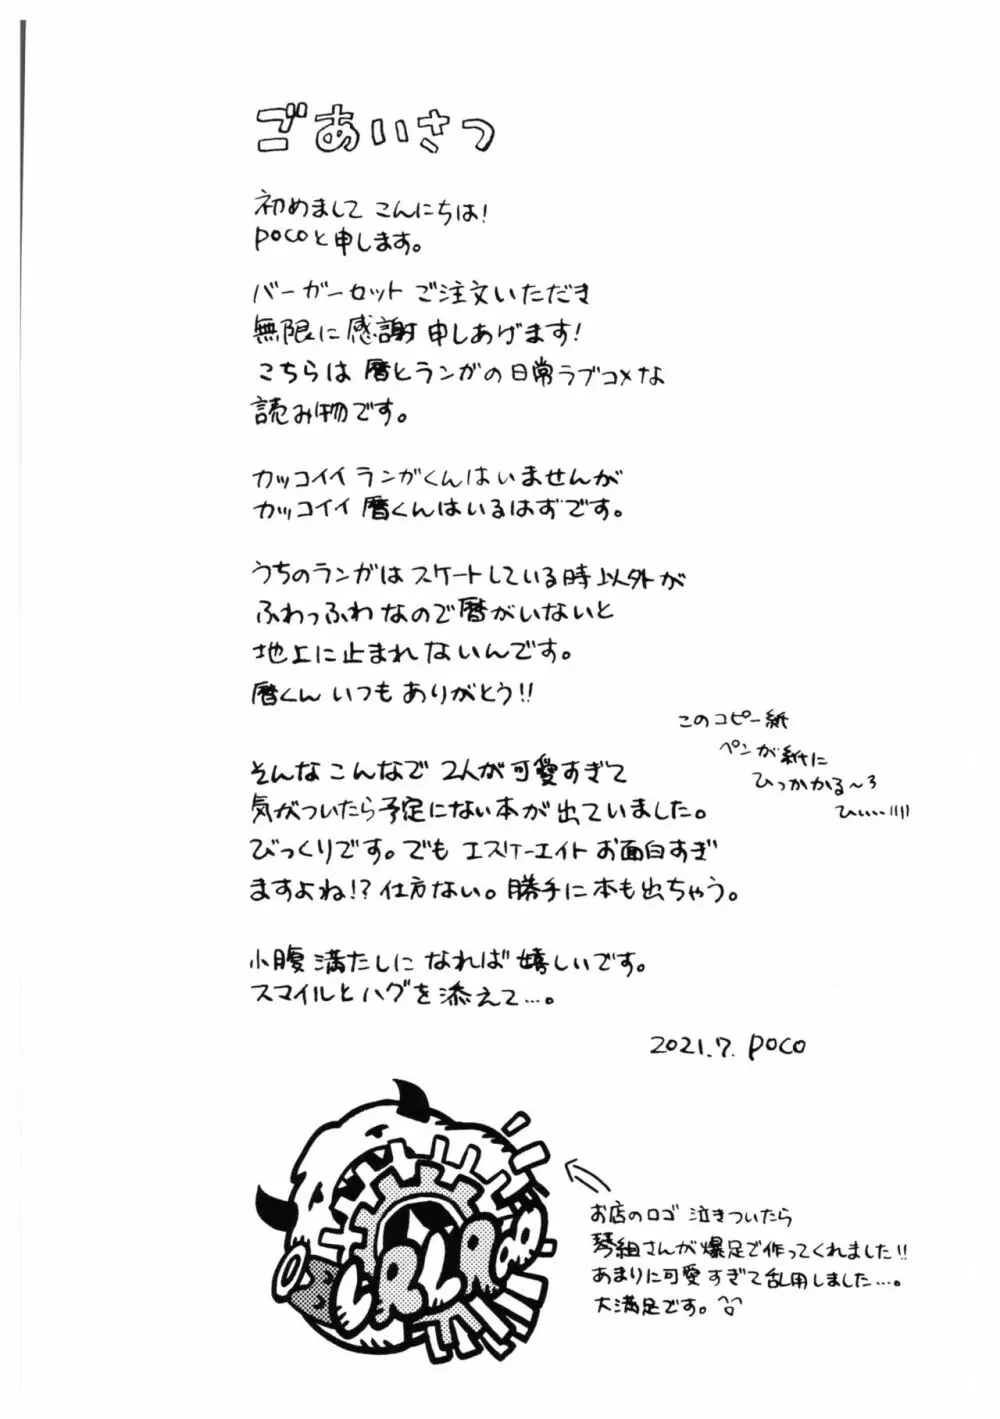 ごあいさつ
初めまして こんにちは!
pocoと申します。
バーガーセット ご注文いただき
無限に感謝申しあげます!
こちらは 暦とランガの日常ラブコメな
読み物です。
カッコイイ ランガくんはいませんが
カッコイイ 暦くんはいるはずです。
うちのランガは スケートしている時以外が
ふわっふわなので暦がいないと
地上に止まれないんです。
暦くん いつもありがとう!!
このコピー紙
ペンが紙に
ひっかかる〜3
ひぃぃ…!!!!
そんなこんなで 2人が可愛すぎて
気がついたら予定にない本が出ていました。
びっくりです。でも エスケーエイト お面白すぎ
ますよね!? 仕方ない。勝手に本も出ちゃう。
小腹満たしになれば嬉しいです。
スマイルとハグを添えて…。
2021.7. poco
お店のロゴ 泣きついたら
琴組さんが爆足で作ってくれました!!
あまりに可愛すぎて乱用しました…。
大満足です。